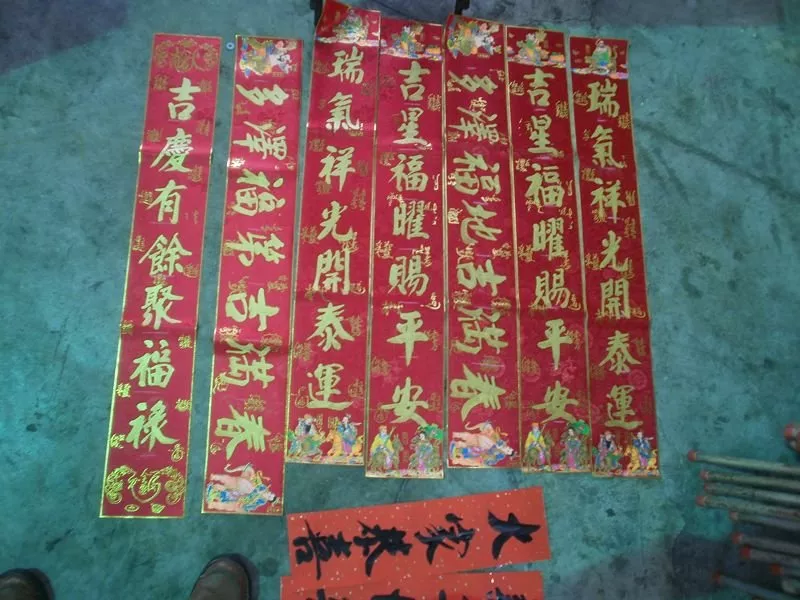 吉慶有餘聚福祿
春滿吉第福澤多
瑞氣祥光開泰運
吉星福曜賜平安
春滿吉地福澤多
吉星福曜賜平安
瑞氣祥光開泰運
大家恭喜